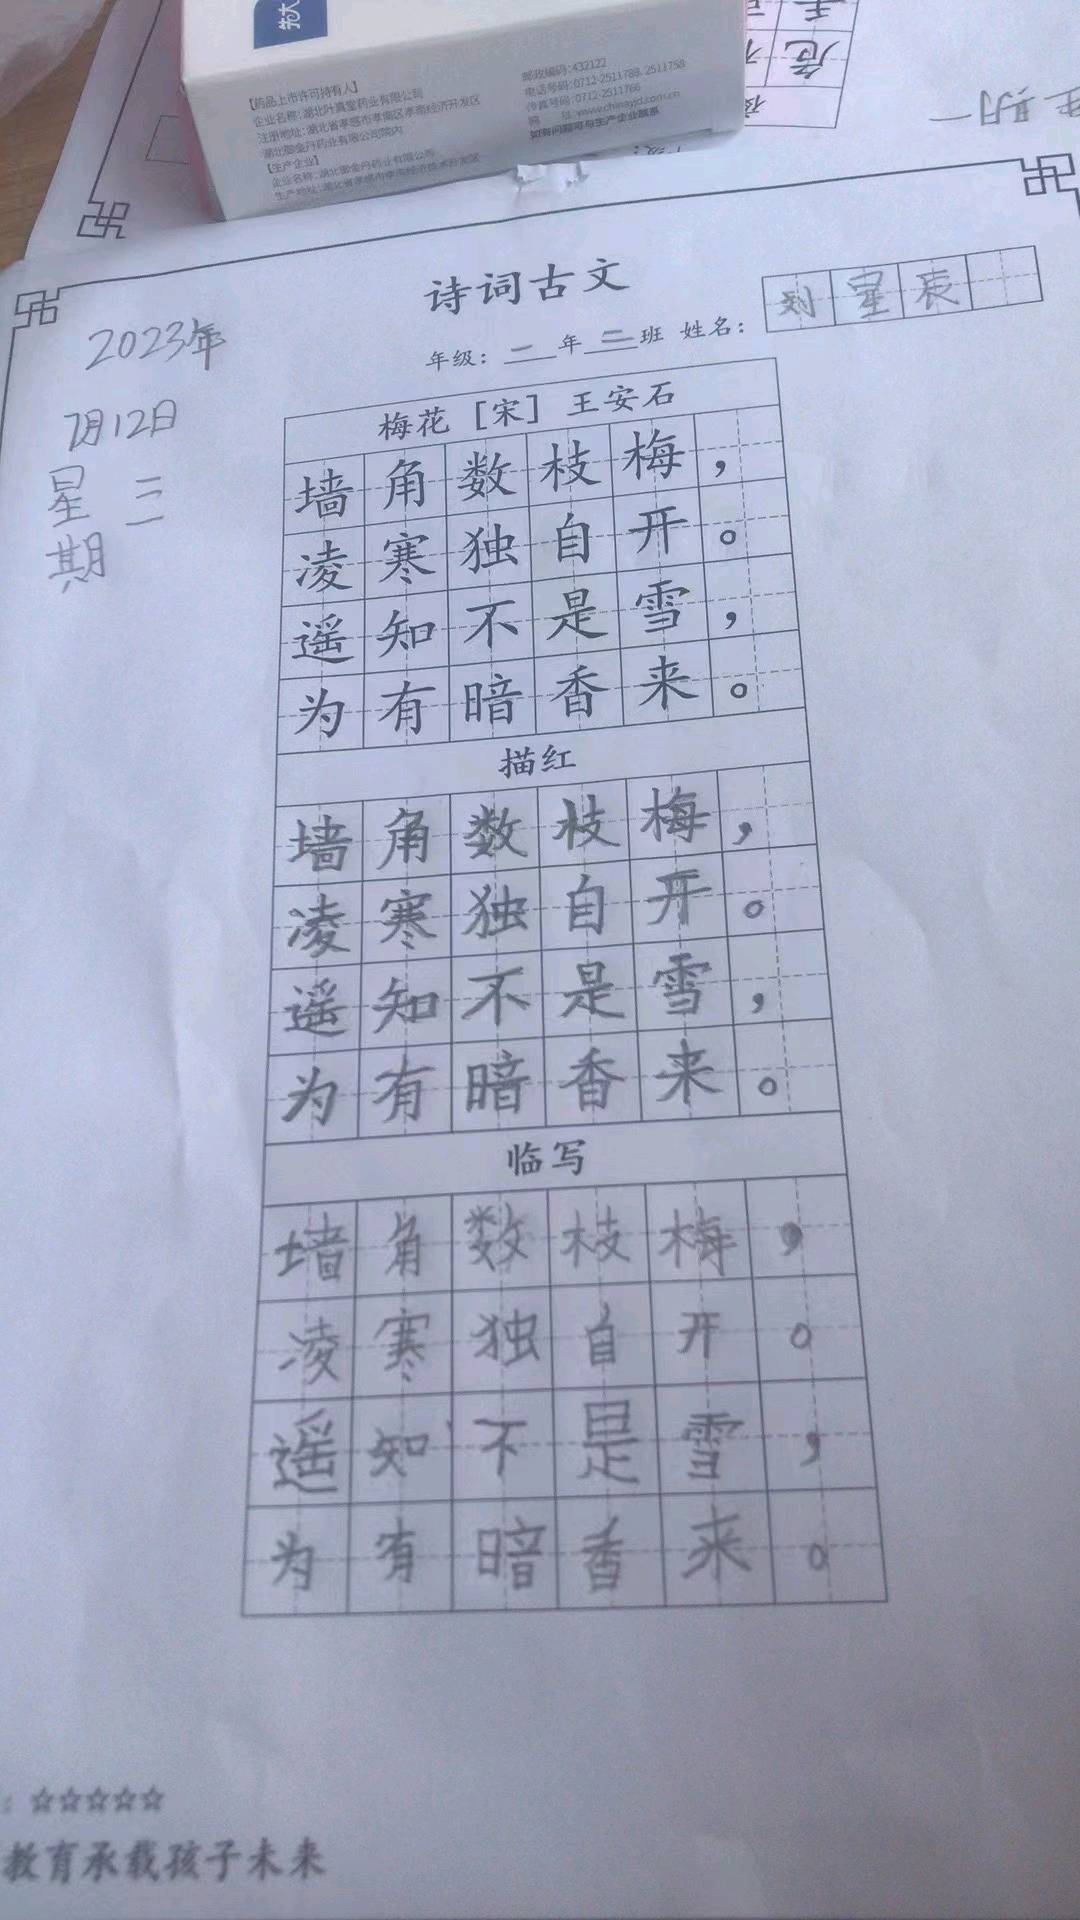 先大
【药品上市许可持有人】
企业名称:湖北叶真堂药业有限公司
注册地址:湖北省孝感市孝南区孝南经济开发区
湖北御金丹药业有限公司院内
【生产企业】
企业名称:湖北御金丹药业有限公司
邮政编码:432122
电话号码:0712-2511788, 2511758
传真号码:0712-2511766
如有问题可与生产企业联系
危
星期一
诗词古文
2023年
年级:二年二班 姓名:刘星辰
7月12日
星期三
梅花 [宋] 王安石
墙角数枝梅,
凌寒独自开。
遥知不是雪,
为有暗香来。
描红
墙角数枝梅,
凌寒独自开。
遥知不是雪,
为有暗香来。
临写
墙角数枝梅,
凌寒独自开。
遥知不是雪,
为有暗香来。
☆☆☆☆☆
教育承载孩子未来